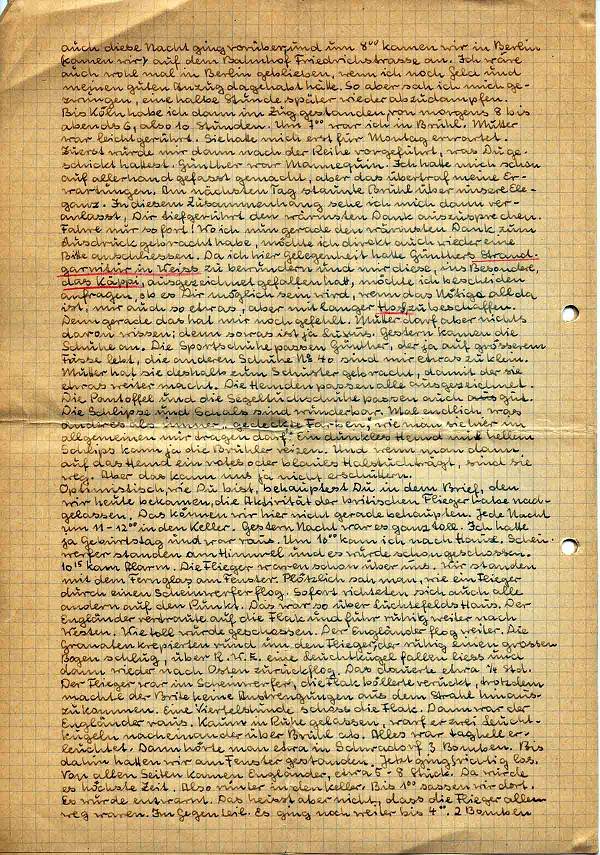 auch diese Nacht ging vorüber, und um 8⁰⁰ kamen wir in Berlin
(kamen wir) auf dem Bahnhof Friedrichstrasse an. Ich wäre
auch wohl mal in Berlin geblieben, wenn ich noch Geld und
meinen guten Anzug dagehabt hätte. So aber sah ich mich ge-
zwungen, eine halbe Stunde später wieder abzudampfen.
Bis Köln habe ich dann im Zug gestanden, von morgens 8 bis
abends 6, also 10 Stunden. Um 7⁰⁰ war ich in Brühl. Mutter
war leicht gerührt. Sie hatte mich erst für Montag erwartet.
Zuerst wurde mir dann nach der Reihe vorgeführt, was Du ge-
schickt hattest. Günther war Mannequin. Ich hatte mich schon
auf allerhand gefasst gemacht, aber das übertraf meine Er-
wartungen. Am nächsten Tag staunte Brühl über unsere Ele-
ganz. In diesem Zusammenhang sehe ich mich dann ver-
anlasst, Dir tiefgerührt den wärmsten Dank auszusprechen.
Fahre mir sofort! Wo ich nun gerade den wärmsten Dank zum
Ausdruck gebracht habe, möchte ich direkt auch wieder eine
Bitte anschliessen. Da ich hier Gelegenheit hatte Günthers Strand-
garnitur in Weiss zu bewundern und mir diese, ins Besondere,
das Käppi, ausgezeichnet gefallen hat, möchte ich bescheiden
anfragen, ob es Dir möglich sein wird, wenn das Nötige all da
ist, mir auch so etwas, aber mit langer Hose zu beschaffen.
Denn gerade das hat mir noch gefehlt. Mutter darf aber nichts
davon wissen, denn so was ist ja Luxus. Gestern kamen die
Schuhe an. Die Sportschuhe passen Günther, der ja auf grösserem
Fusse lebt, die anderen Schuhe No 40 sind mir etwas zu klein.
Mutter hat sie deshalb zum Schuster gebracht, damit der sie
etwas weiter macht. Die Hemden passen alle ausgezeichnet.
Die Pantoffel und die Segeltuchschuhe passen auch gut.
Die Schlipse und Schals sind wunderbar. Mal endlich was
anderes als immer „gedeckte Farben", wie man sie hier im
allgemeinen nur tragen darf. Ein dunkles Hemd mit hellem
Schlips kann ja die Brühler reizen. Und wenn man dann
auf das Hemd ein rotes oder blaues Halstuch trägt, sind sie
weg. Aber das kann uns ja nicht erschüttern.
Optimistisch, wie Du bist, behauptest Du in dem Brief, den
wir heute bekamen, die Aktivität der britischen Flieger habe nach-
gelassen. Das können wir hier nicht gerade behaupten. Jede Nacht
um 11-12⁰⁰ in den Keller. Gestern Nacht war es ganz toll. Ich hatte
ja Geburtstag und war raus. Um 10⁰⁰ kam ich nach Hause. Schein-
werfer standen am Himmel und es wurde schon geschossen.
10¹⁵ kam Alarm. Die Flieger waren schon über uns. Wir standen
mit dem Fernglas am Fenster. Plötzlich sah man, wie ein Flieger
durch einen Scheinwerfer flog. Sofort richteten sich auch alle
andern auf den Punkt. Das war so über Luchtefelds Haus. Der
Engländer vertraute auf die Flak und fuhr ruhig weiter nach
Westen. Wie toll wurde geschossen. Der Engländer flog weiter. Die
Granaten krepierten rund um den Flieger, der ruhig einen grossen
Bogen schlug, über R.W.E. eine Leuchtkugel fallen liess und
dann wieder nach Osten zurückflog. Das dauerte etwa ¼ Std.
Der Flieger war im Scheinwerfer, die Flak böllerte verückt, trotzdem
machte der Brite keine Anstrengungen aus dem Strahl hinaus-
zukommen. Eine Viertelstunde schoss die Flak. Dann war der
Engländer raus. Kaum in Ruhe gelassen, warf er zwei Leucht-
kugeln nacheinander über Brühl ab. Alles war taghell er-
leuchtet. Dann hörte man etwa in Schwadorf 3 Bomben. Bis
dahin hatten wir am Fenster gestanden. Jetzt ging's richtig los.
Von allen Seiten kamen Engländer, etwa 5-8 Stück. Da wurde
es höchste Zeit. Also runter in den Keller. Bis 1⁰⁰ sassen wir dort.
Es wurde entwarnt. Das heisst aber nicht, dass die Flieger alle
weg waren. Im Gegenteil. Es ging noch weiter bis 4⁰⁰. 2 Bomben